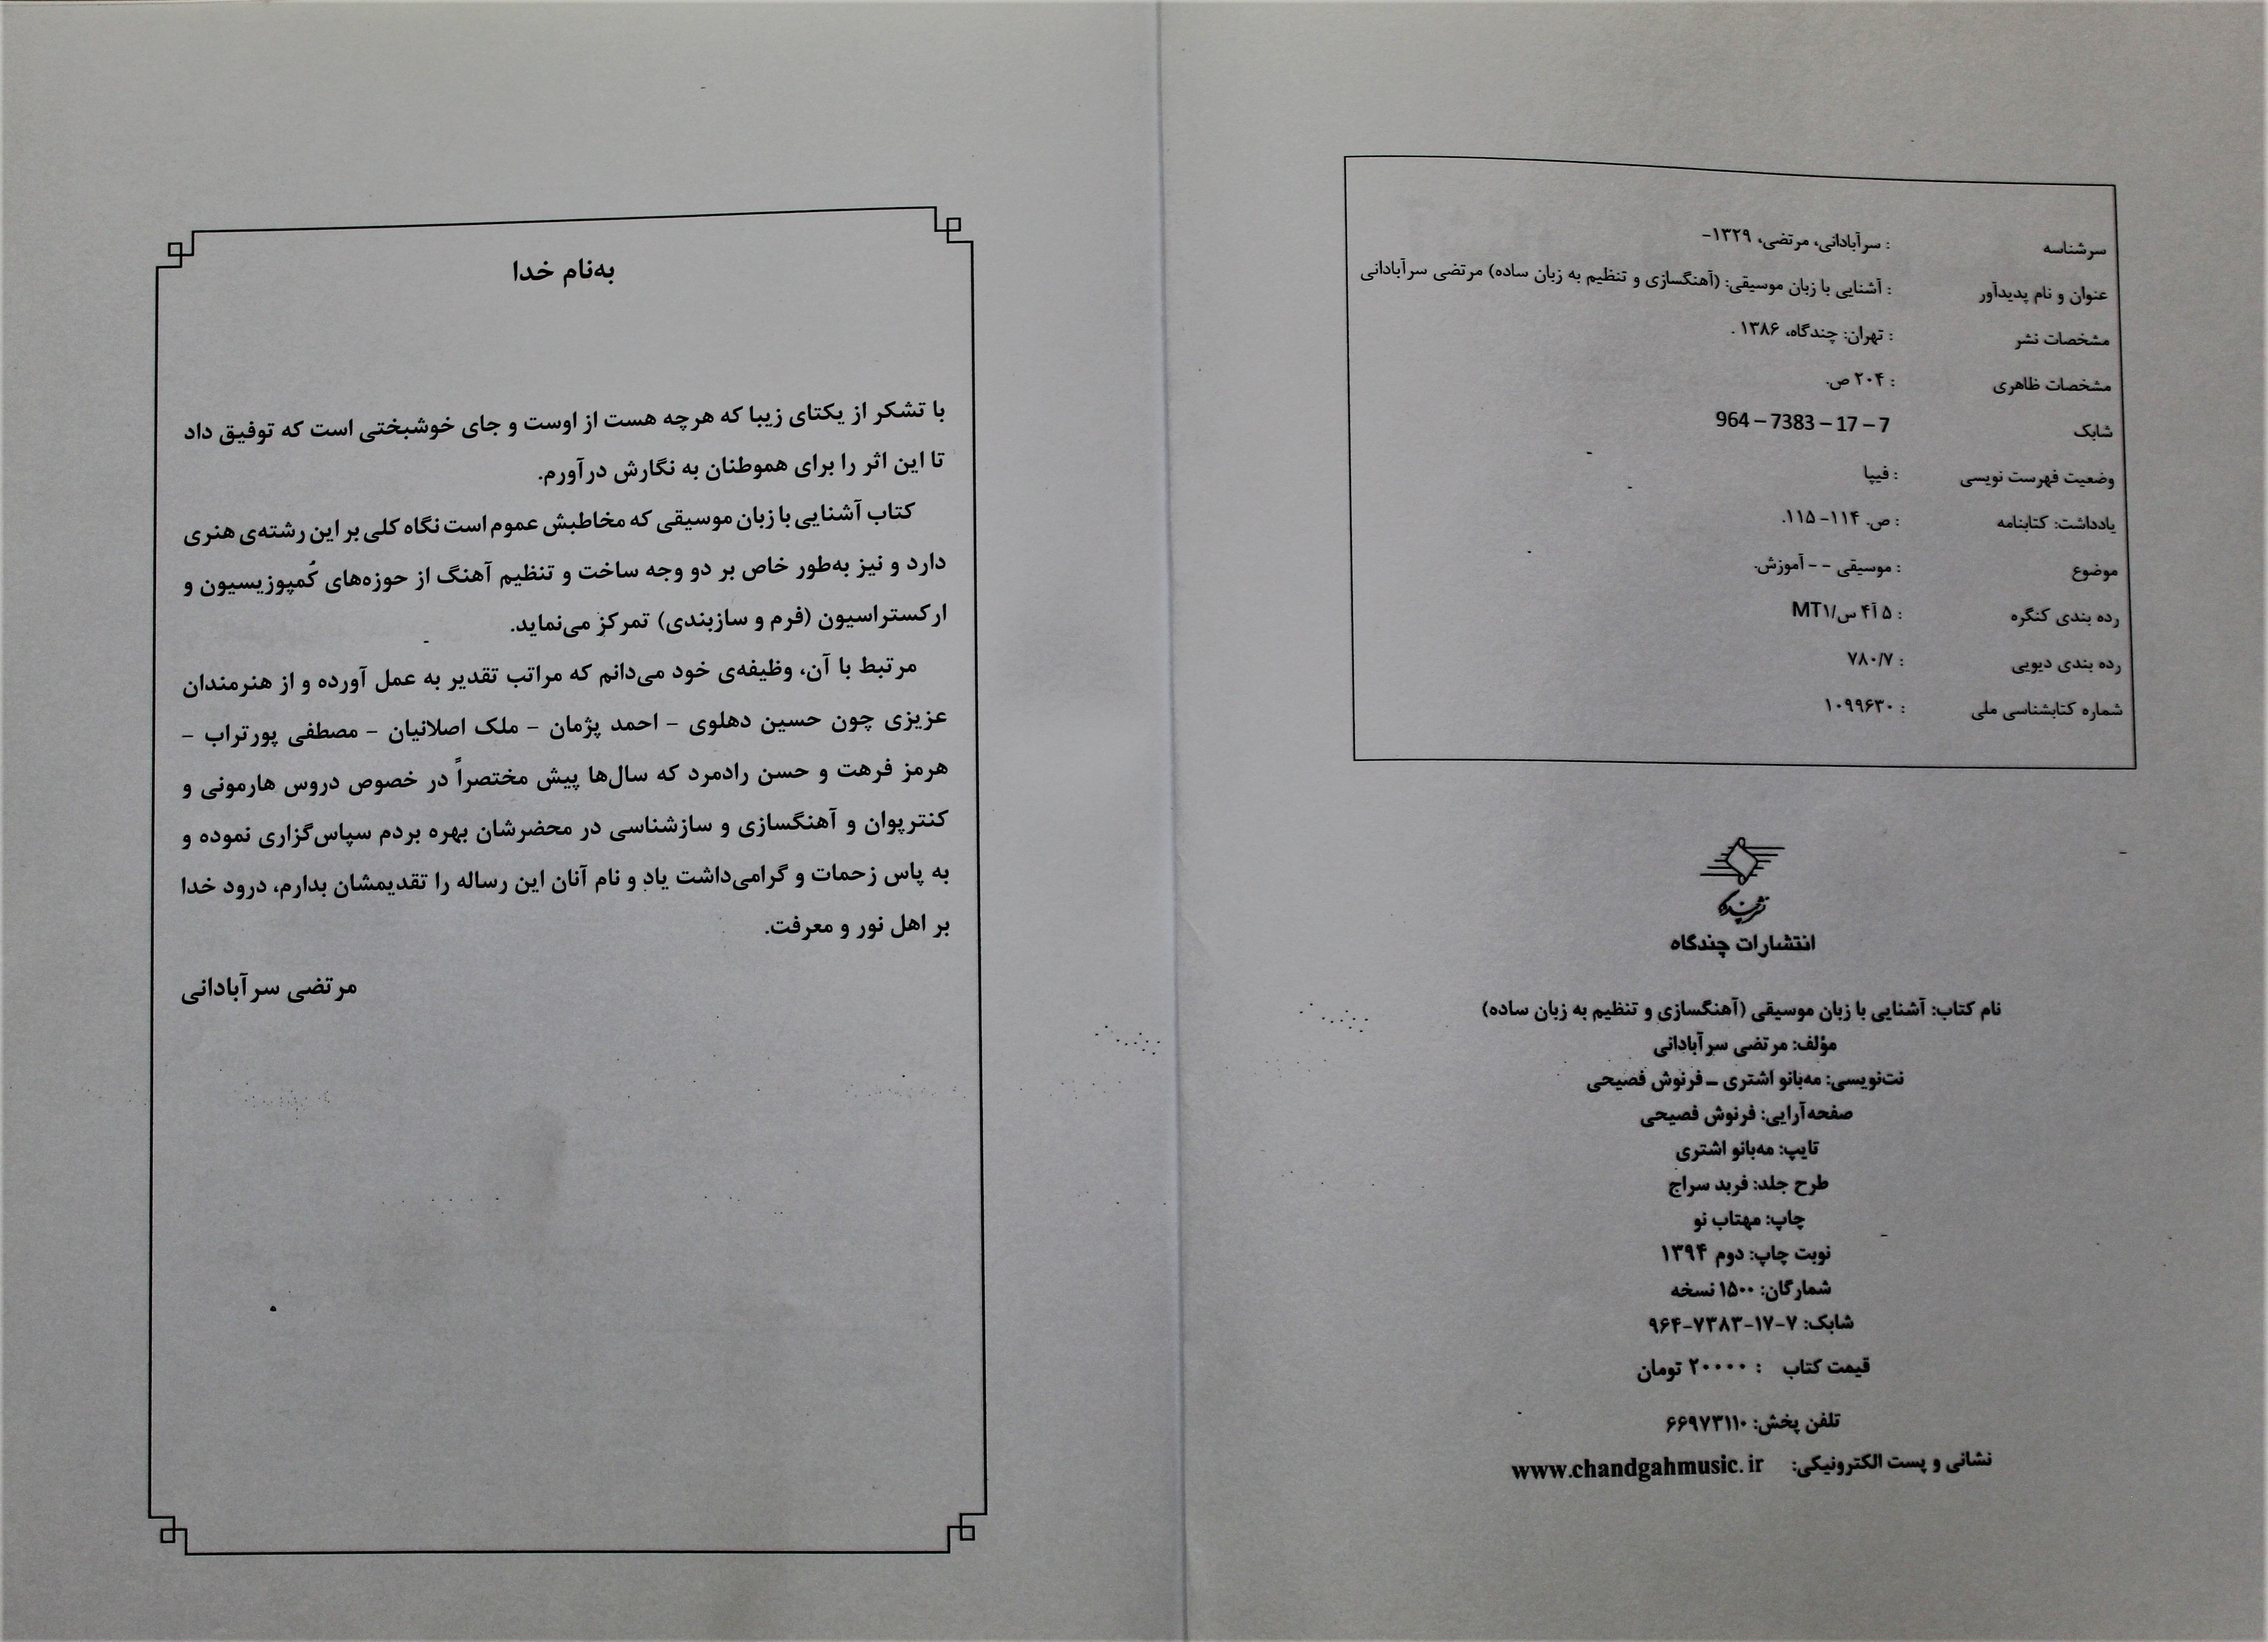 سرشناسه : سرآبادانی، مرتضی، ۱۳۲۹-
عنوان و نام پدیدآور : آشنایی با زبان موسیقی: (آهنگسازی و تنظیم به زبان ساده) مرتضی سرآبادانی
مشخصات نشر : تهران: چندگاه، ۱۳۸۶ .
مشخصات ظاهری : ۲۰۴ ص.
شابک 964 – 7383 – 17 – 7
وضعیت فهرست نویسی : فیپا
یادداشت: کتابنامه : ص. ۱۱۴- ۱۱۵.
موضوع : موسیقی - - آموزش.
رده بندی کنگره : ۵ آ۴ س/MT۱
رده بندی دیویی : ۷۸۰/۷
شماره کتابشناسی ملی : ۱۰۹۹۶۳۰
انتشارات چندگاه
نام کتاب: آشنایی با زبان موسیقی (آهنگسازی و تنظیم به زبان ساده)
مؤلف: مرتضی سرآبادانی
نت‌نویسی: مه‌بانو اشتری – فرنوش فصیحی
صفحه‌آرایی: فرنوش فصیحی
تایپ: مه‌بانو اشتری
طرح جلد: فربد سراج
چاپ: مهتاب نو
نوبت چاپ: دوم ۱۳۹۴
شمارگان: ۱۵۰۰ نسخه
شابک: ۷-۱۷-۷۳۸۳-۹۶۴
قیمت کتاب : ۲۰۰۰۰ تومان
تلفن پخش: ۶۶۹۷۳۱۱۰
نشانی و پست الکترونیکی: www.chandgahmusic.ir
به‌نام خدا
با تشکر از یکتای زیبا که هرچه هست از اوست و جای خوشبختی است که توفیق داد
تا این اثر را برای هموطنان به نگارش درآورم.
کتاب آشنایی با زبان موسیقی که مخاطبش عموم است نگاه کلی بر این رشته‌ی هنری
دارد و نیز به‌طور خاص بر دو وجه ساخت و تنظیم آهنگ از حوزه‌های کُمپوزیسیون و
ارکستراسیون (فرم و سازبندی) تمرکز می‌نماید.
مرتبط با آن، وظیفه‌ی خود می‌دانم که مراتب تقدیر به عمل آورده و از هنرمندان
عزیزی چون حسین دهلوی – احمد پژمان – ملک اصلانیان – مصطفی پورتراب –
هرمز فرهت و حسن رادمرد که سال‌ها پیش مختصراً در خصوص دروس هارمونی و
کنترپوان و آهنگسازی و سازشناسی در محضرشان بهره بردم سپاس‌گزاری نموده و
به پاس زحمات و گرامی‌داشت یاد و نام آنان این رساله را تقدیمشان بدارم، درود خدا
بر اهل نور و معرفت.
مرتضی سرآبادانی